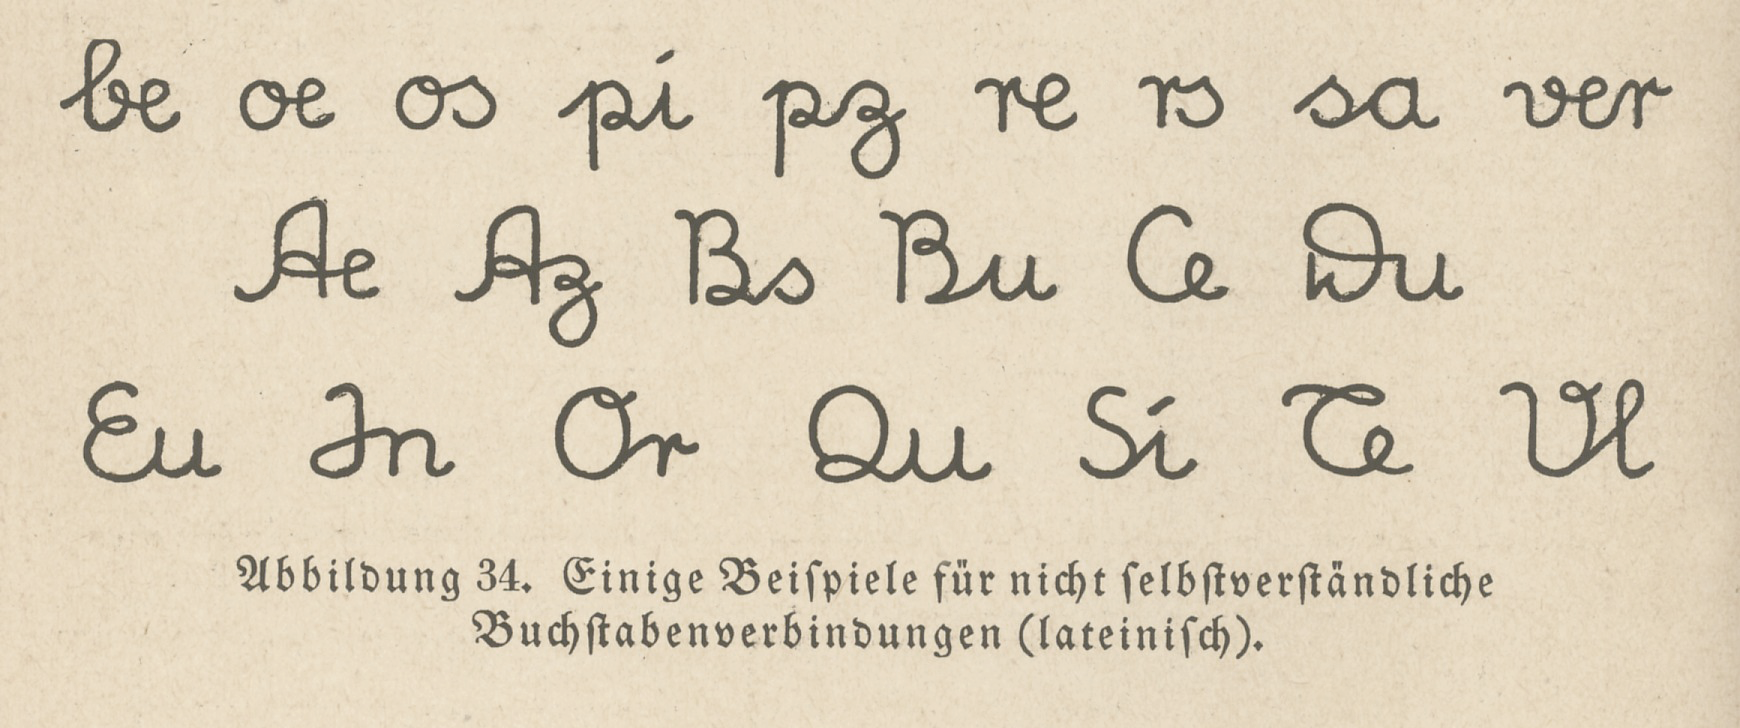 be oe os pi pz re rs sa ver
Ae Az Bs Bu Ce Du
Eu In Or Qu Si Te Vl
Abbildung 34. Einige Beiſpiele für nicht ſelbſtverſtändliche
Buchſtabenverbindungen (lateiniſch).